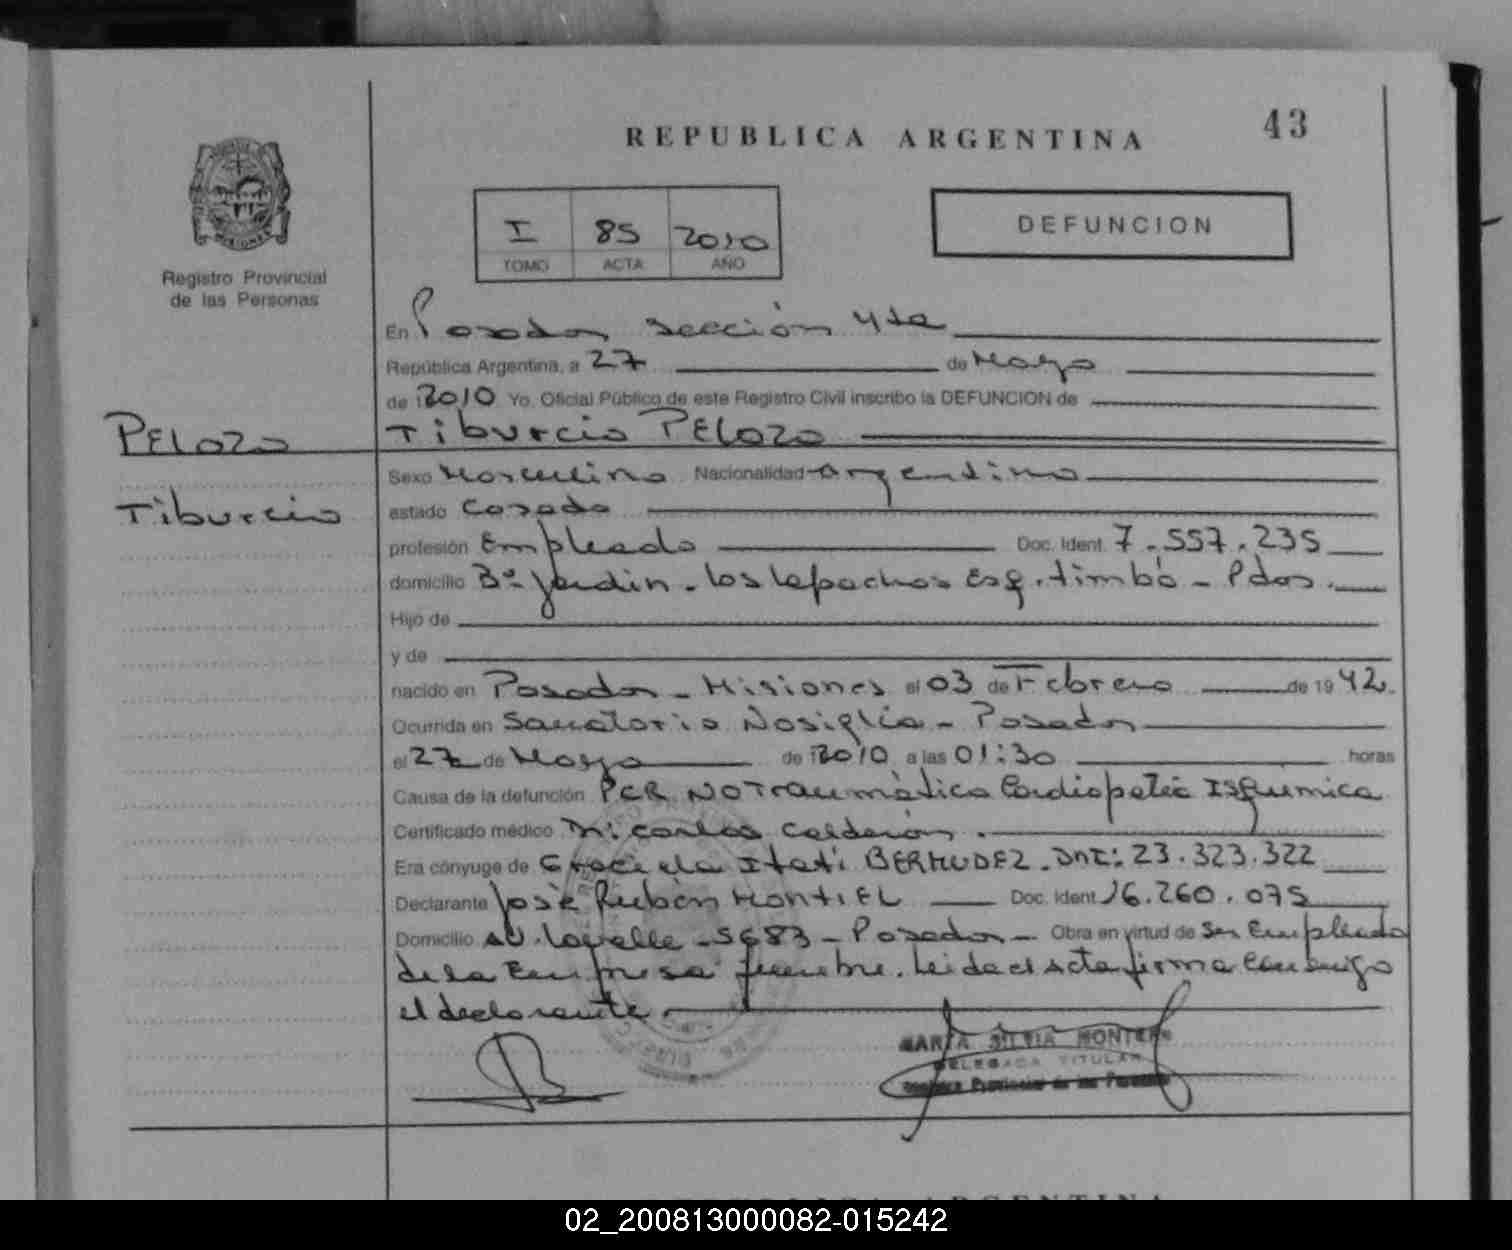 REPUBLICA ARGENTINA
43
I 85 2010
TOMO ACTA AÑO
DEFUNCION
Registro Provincial
de las Personas
En Posadas sección 4ta
República Argentina, a 27 de Mayo
de 2010 Yo, Oficial Público de este Registro Civil inscribo la DEFUNCION de
PELOZO
Tiburcio PELOZO
Tiburcio
Sexo Masculino Nacionalidad Argentino
estado Casado
profesión Empleado Doc. Ident. 7.557.235
domicilio Bº Jardin - los lapachos Esq. timbó - Pdas.
Hijo de
y de
nacido en Posadas - Misiones el 03 de Febrero de 1942.
Ocurrida en Sanatorio Nosiglia - Posadas
el 27 de Mayo de 2010 a las 01:30 horas
Causa de la defunción PCR NO Traumática Cardiopatía Isquemica
Certificado médico Dr. Carlos Calderón.
Era cónyuge de Graciela Itatí BERMUDEZ. DNI: 23.323.322
Declarante José Rubén MONTIEL Doc. Ident. 16.260.075
Domicilio AV. Lavalle - 5683 - Posadas - Obra en virtud de Ser Empleado
de la Empresa fúnebre. Leida el Acta firma Conmigo
el declarante.
MARTA SILVIA MONTERO
DELEGADA TITULAR
Registro Provincial de las Personas
REPUBLICA ARGENTINA
02_200813000082-015242